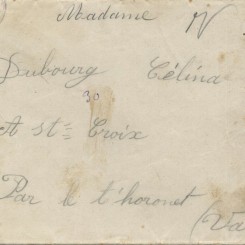 Madame
Dubourg Célina
30
A st= Croix
Par le t'horonet
(Va